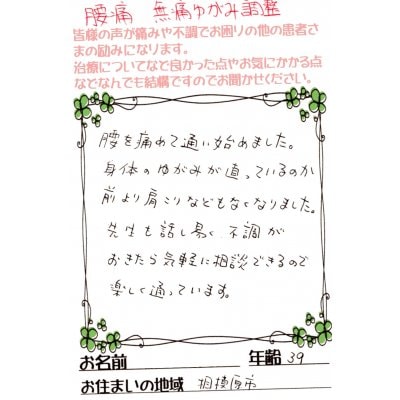 腰痛 無痛ゆがみ調整
皆様の声が痛みや不調でお困りの他の患者さ
まの励みになります。
治療についてなど良かった点やお気にかかる点
などなんでも結構ですのでお聞かせください。
腰を痛めて通い始めました。
身体のゆがみが直っているのか
前より肩こりなどもなくなりました。
先生も話し易く 不調が
おきたら気軽に相談できるので
楽しく通っています。
お名前 年齢 39
お住まいの地域 相模原市